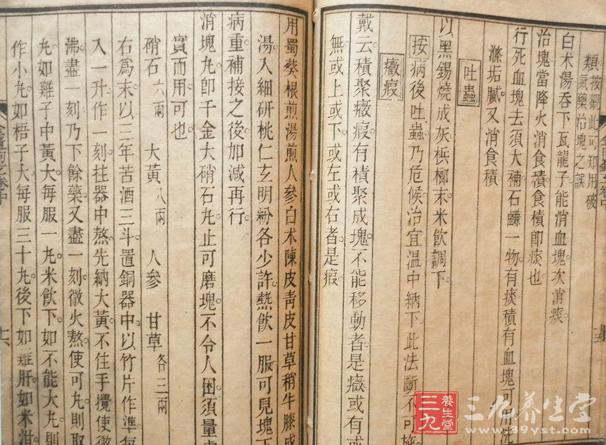 類按劑此可知用破
氣藥治塊之誤
白木湯吞下瓦龍子能消血塊次消痰
治塊當降火消食積食積即痰也
行死血塊去須大補石鹻一物有痰積有血塊可
滌垢膩又消食積
吐蟲
以黑錫燒成灰梹榔末米飲調下
按病後吐蟲乃危候治宜溫中納下此法斷不可施
癥瘕
戴云積聚癥瘕有積聚成塊不能移動者是癥或有或
無或上或下或左或右者是瘕
用蜀葵根煎湯煎人參白术陳皮青皮甘草稍牛膝成
湯入細研桃仁玄明粉各少許熱飲一服可見塊下
病重補接之後加減再行
消塊丸即千金大硝石丸止可磨塊不令人困須量虛
實而用可也
硝石六兩 大黃八兩 人參 甘草各三兩
右為末以三年苦酒三斗置銅器中以竹片作準每
入一升作一刻拄器中熬先納大黃不住手攪使微
沸盡一刻乃下餘藥又盡一刻微火熬使可丸則取
丸如雞子中黃大每服一丸米飲下如不能大丸則
作小丸如梧子大每服三十丸後下如雞肝如米泔
三九
養生堂
三九养生堂
www.39yst.com